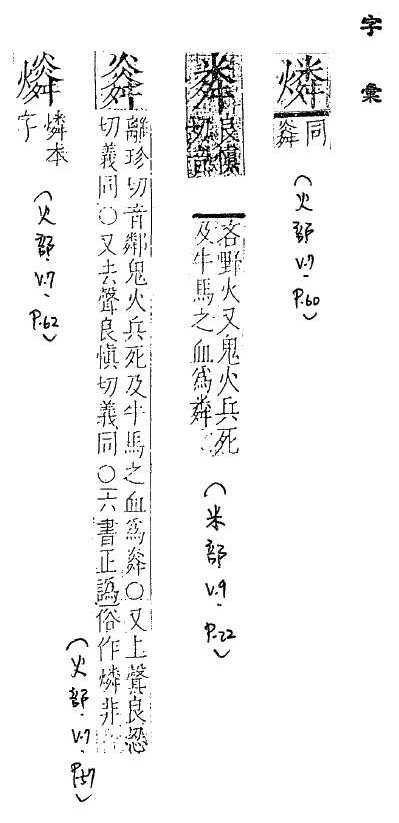 字彙
燐
同
㷠
(火部 v.7 - P.60)
粦
良慎
切音
吝野火又鬼火兵死
及牛馬之血為粦
(米部 v.9 - P.22)
㷠
離珍切音鄰鬼火兵死及牛馬之血爲㷠○又上聲良愍
切義同○又去聲良慎切義同○六書正譌俗作燐非
(火部 v.7 - P.57)
燐本
字
(火部 v.7 - P.62)